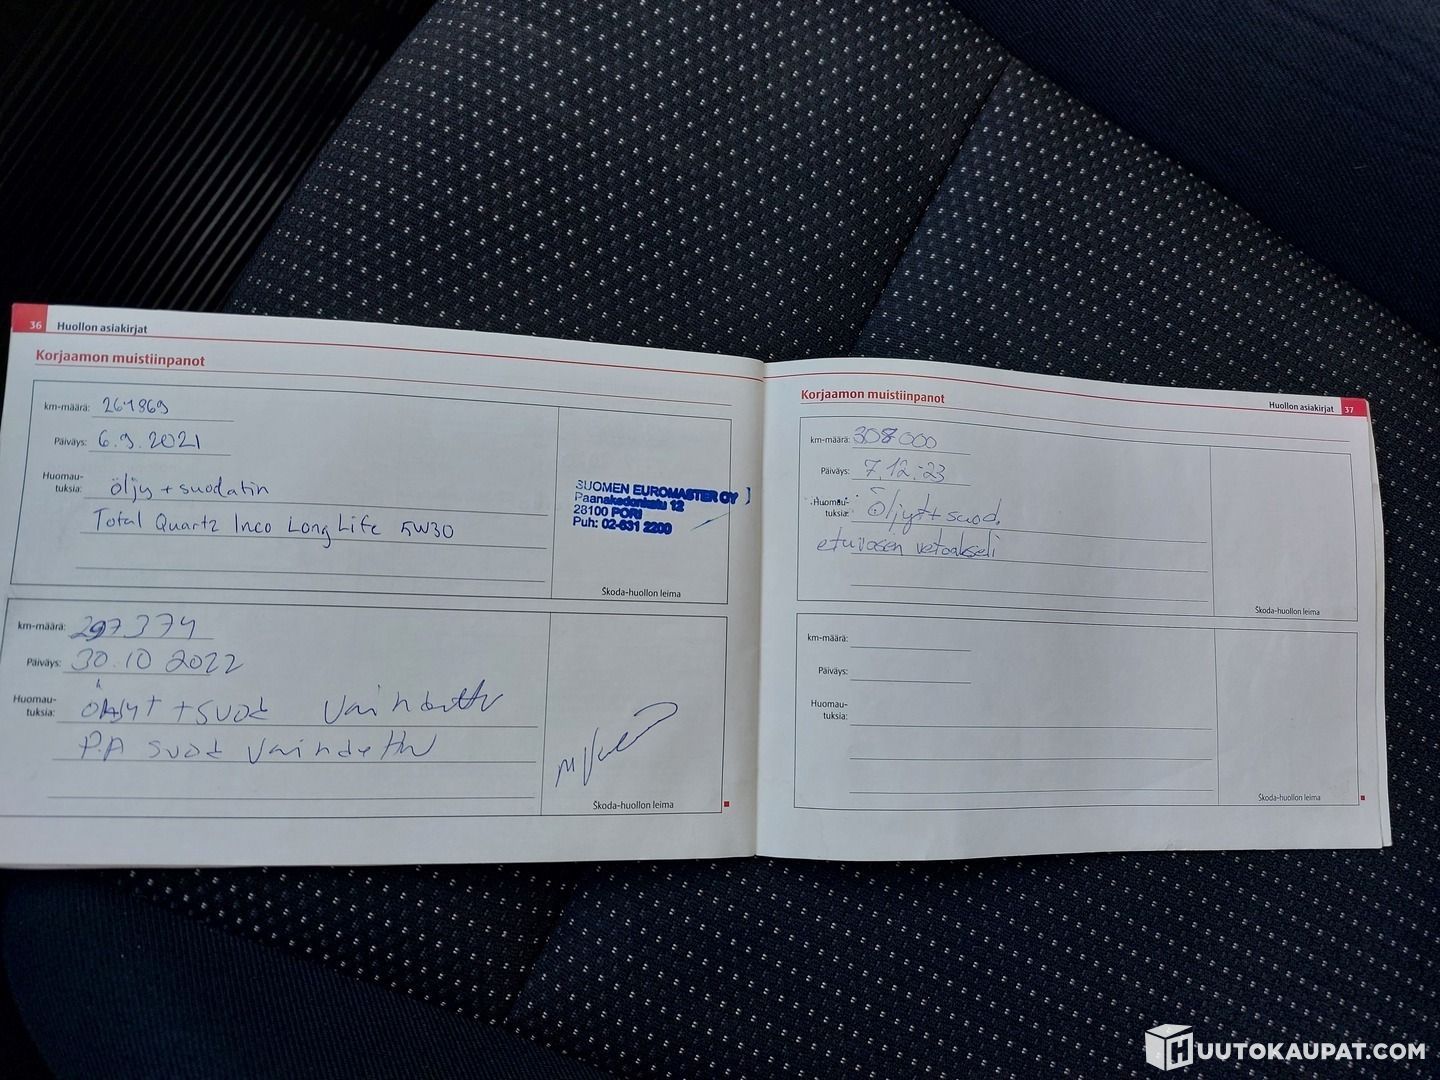 36 Huollon asiakirjat
Korjaamon muistiinpanot
km-määrä: 261869
Päiväys: 6.9.2021
Huomau-
tuksia: öljy + suodatin
Total Quartz Ineo Long Life 5W30
SUOMEN EUROMASTER OY
Paanakedonkatu 12
28100 PORI
Puh: 02-631 2200
Škoda-huollon leima
km-määrä: 297374
Päiväys: 30.10 2022
Huomau-
tuksia: öljyt + suod vaihdettu
P.A suod vaihdettu
Škoda-huollon leima
Korjaamon muistiinpanot
Huollon asiakirjat 37
km-määrä: 308000
Päiväys: 7.12.-23
Huomau-
tuksia: Öljyt + suod.
etuvasen vetoakseli
Škoda-huollon leima
km-määrä:
Päiväys:
Huomau-
tuksia:
Škoda-huollon leima
HUUTOKAUPAT.COM